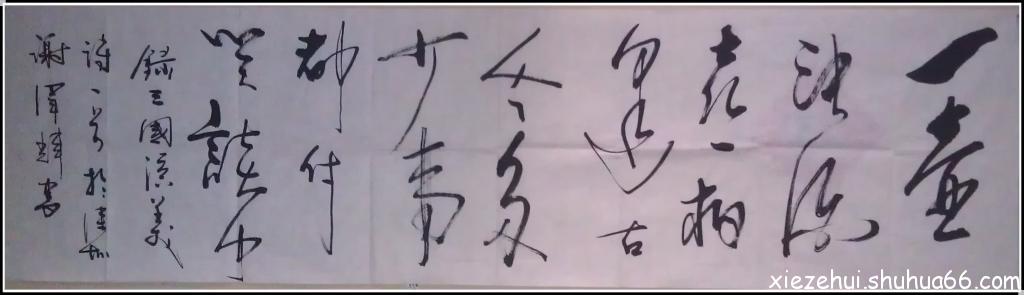 一壶
浊酒
喜相
逢古
今多
少事
都付
笑談中
錄三國演義
詩一首於深圳
謝澤輝書
xiezehui.shuhua66.com